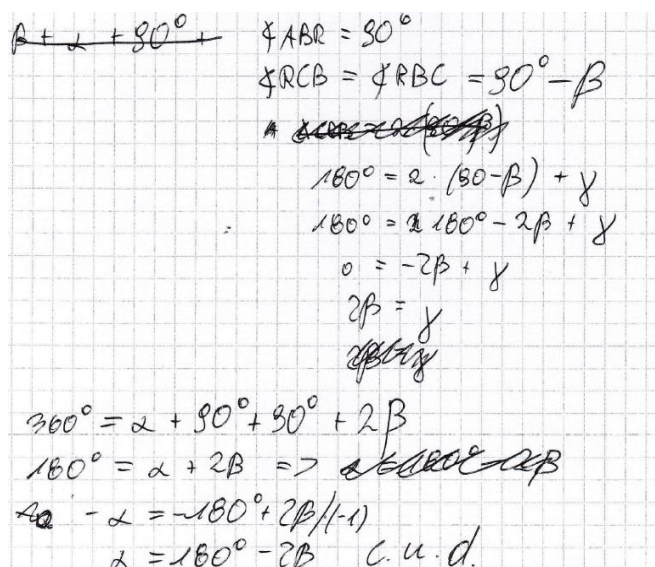 β + α + 90° +
∢ABR = 90°
∢RCB = ∢RBC = 90° - β
180° = 2 · (90 - β) + γ
180° = 180° - 2β + γ
0 = -2β + γ
2β = γ
360° = α + 90° + 90° + 2β
180° = α + 2β =>
-α = -180° + 2β /·(-1)
α = 180° - 2β c.u.d.